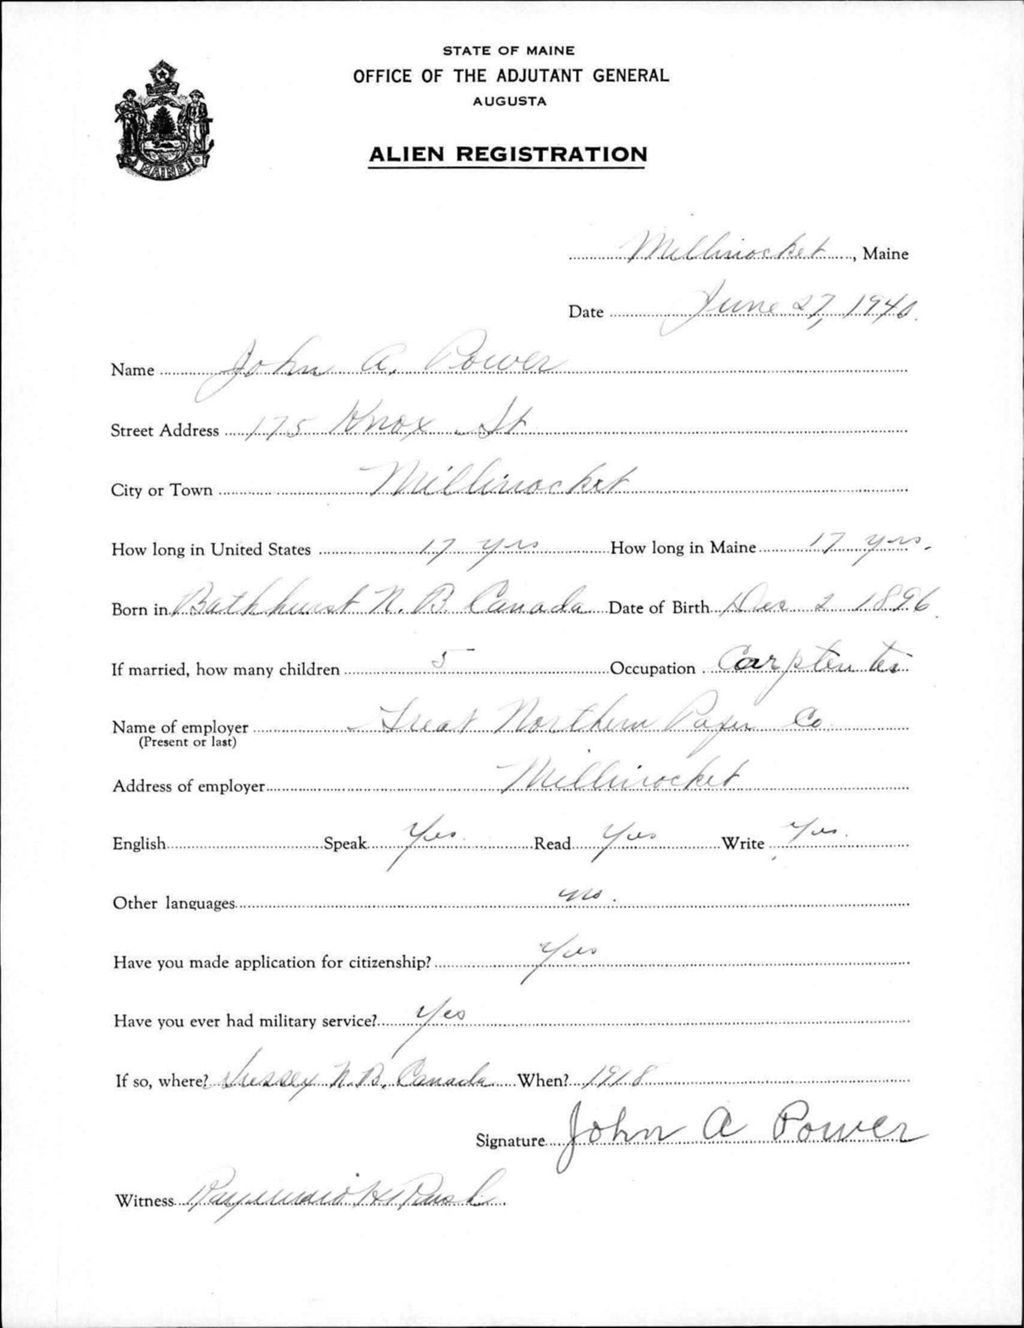 STATE OF MAINE
OFFICE OF THE ADJUTANT GENERAL
AUGUSTA
ALIEN REGISTRATION
MAINE
Millinocket, Maine
Date June 27, 1940.
Name John A. Power
Street Address 175 Knox St
City or Town Millinocket
How long in United States 17 yrs How long in Maine 17 yrs.
Born in Bathhurst N. B. Canada Date of Birth Dec 2 1896.
If married, how many children 5 Occupation Carpenter
Name of employer Great Northern Paper Co
(Present or last)
Address of employer Millinocket
English Speak Yes. Read Yes Write Yes.
Other languages no.
Have you made application for citizenship? Yes
Have you ever had military service? Yes
If so, where? Sussex N.B. Canada When? 1918
Signature John A Power
Witness Raymond H Rush.